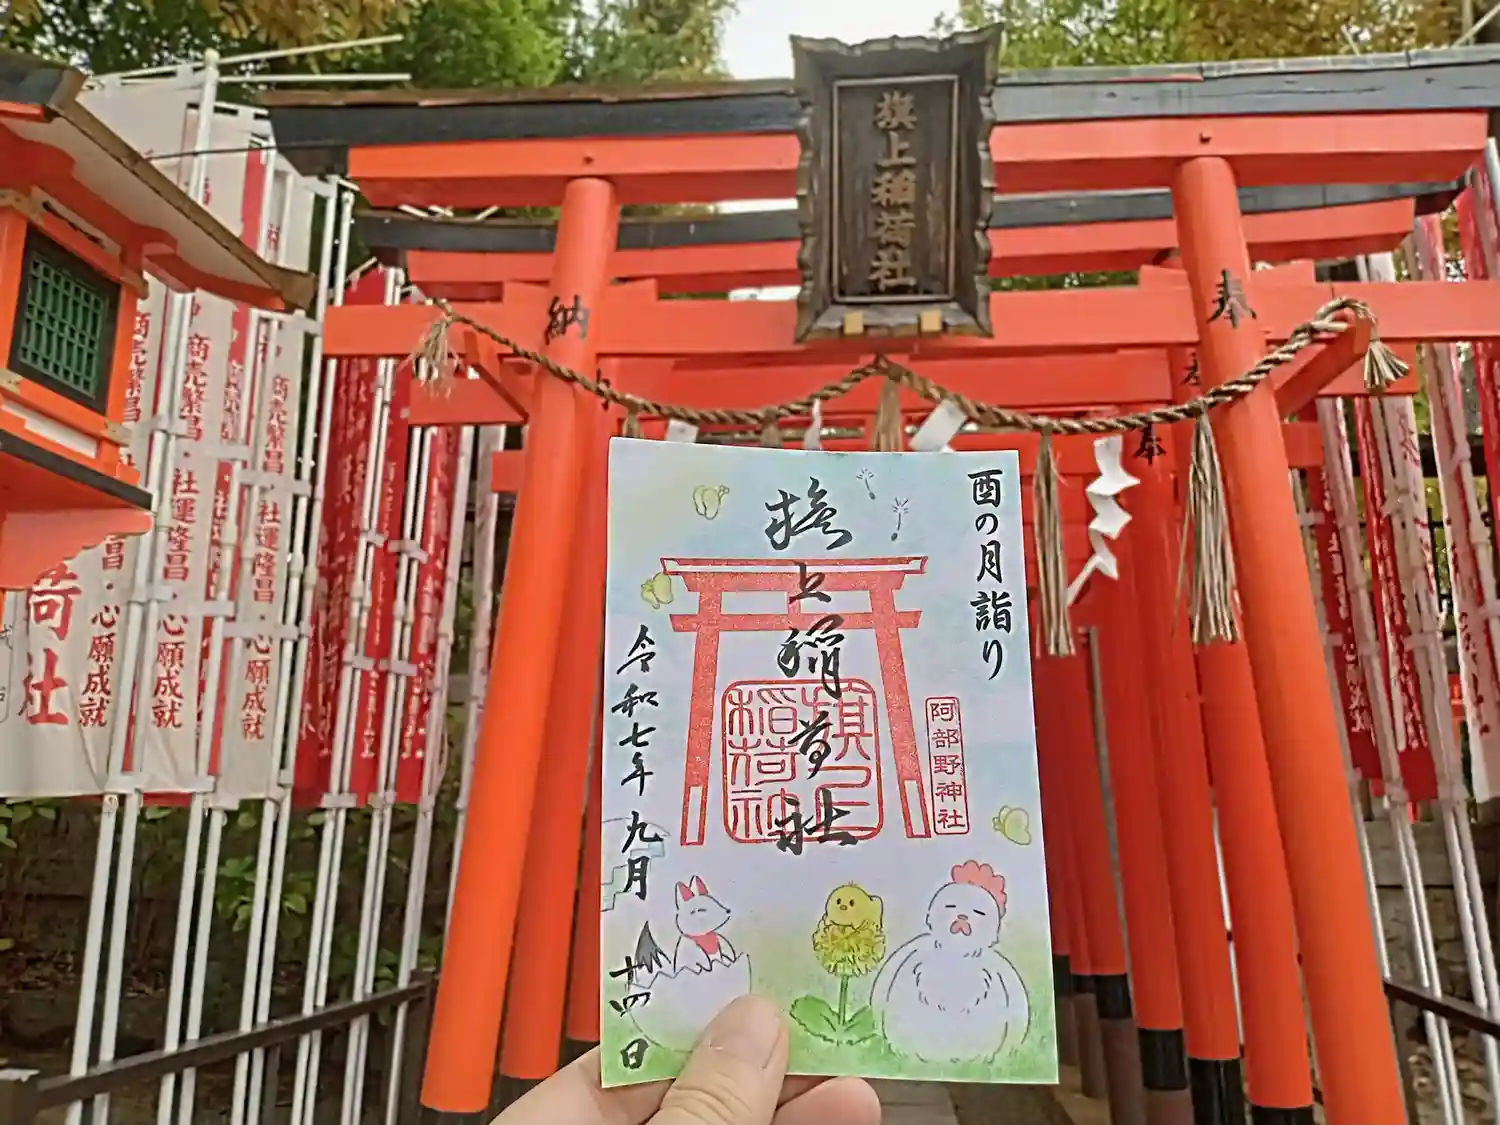 旗上稲荷社
納
奉
奉
酉の月詣り
旗上稲荷社
令和七年九月十四日
阿部野神社
旗上稲荷社
商売繁昌・社運隆昌・心願成就
商売繁昌・社運隆昌・心願成就
商売繁昌・社運隆昌・心願成就
荷社